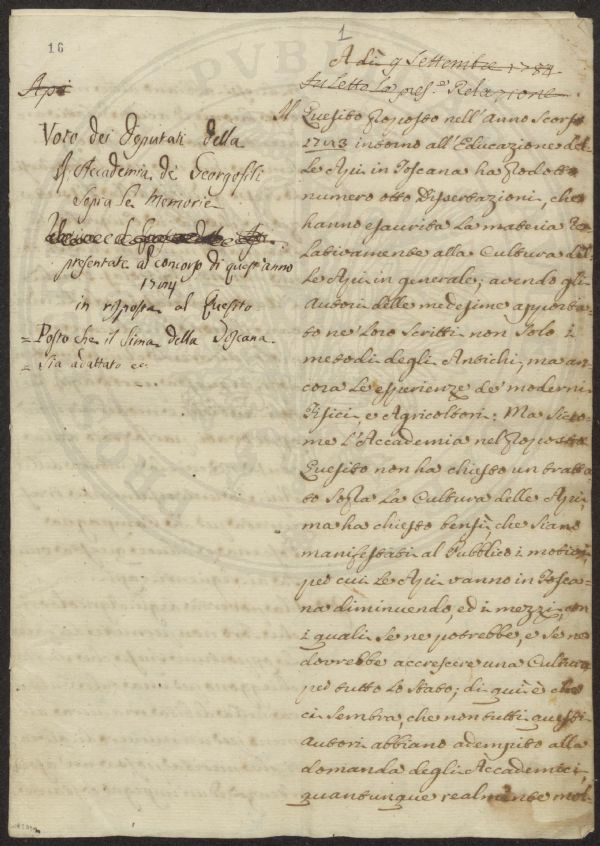 16
1
Api
A dì 9 Settembre 1784
fu Letto La pres.e Relazione
Voto dei Deputati della
R Accademia de' Georgofili
Sopra Le Memorie
presentate al concorso di quest'anno
1784
in risposta al Quesito
= Posto che il Clima della Toscana
= Sia adattato ec.
Il Quesito proposto nell'Anno Scorso
1783 intorno all'Educazione del-
Le Api in Toscana ha prodotto
numero otto Dissertazioni, che
hanno esaurita La materia Re-
Lativamente alla Cultura del-
Le Api in generale; avendo gli
Autori delle medesime apporta-
to ne' Loro Scritti non Solo i
metodi degli Antichi, ma an-
cora Le esperienze de' moderni
Fisici e Agricoltori: Ma Sicco-
me L'Accademia nel proposto
Quesito non ha chiesto un tratta-
to Sopra La Cultura delle Api,
ma ha chiesto bensì, che Siano
manifestati al Pubblico i motivi,
per cui Le Api vanno in Tosca-
na diminuendo, ed i mezzi, con
i quali Se ne potrebbe, e Se ne
dovrebbe accrescere una Cultura
per tutto Lo Stato; di quì è che
ci Sembra, che non tutti questi
Autori abbiano adempito alla
domanda degli Accademici,
quantunque realmente mol-